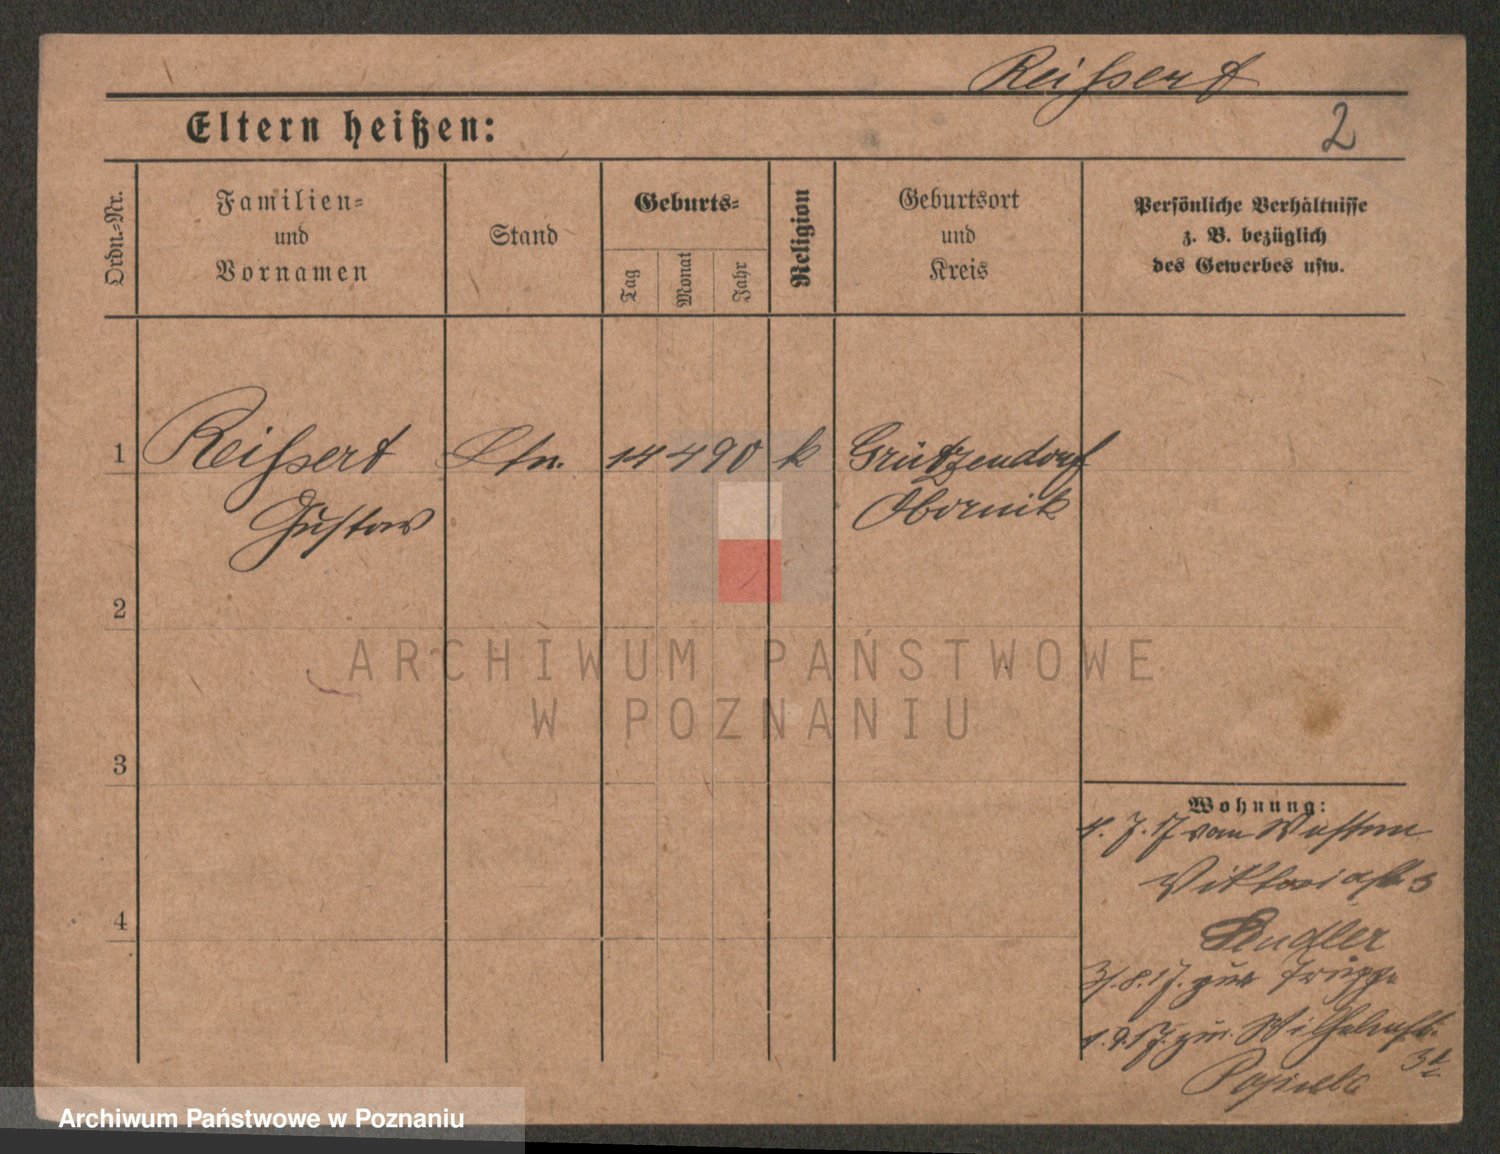 Reißert
2
Eltern heißen:
Ordn.-Nr.
Familien-
und
Vornamen
Stand
Geburts-
Tag
Monat
Jahr
Religion
Geburtsort
und
Kreis
Persönliche Verhältnisse
z. B. bezüglich
des Gewerbes usw.
1 Reißert Ltn. 14 4 90 k Grützendorf
Gustav Obornik
2
3
4
Wohnung:
4. 7. 17 von Westen
Viktoriastr. 3
Endler
31. 8. 17. zur Truppe
1. 9. 17. zur. Wilhelmstr.
ARCHIWUM PAŃSTWOWE
W POZNANIU
Archiwum Państwowe w Poznaniu